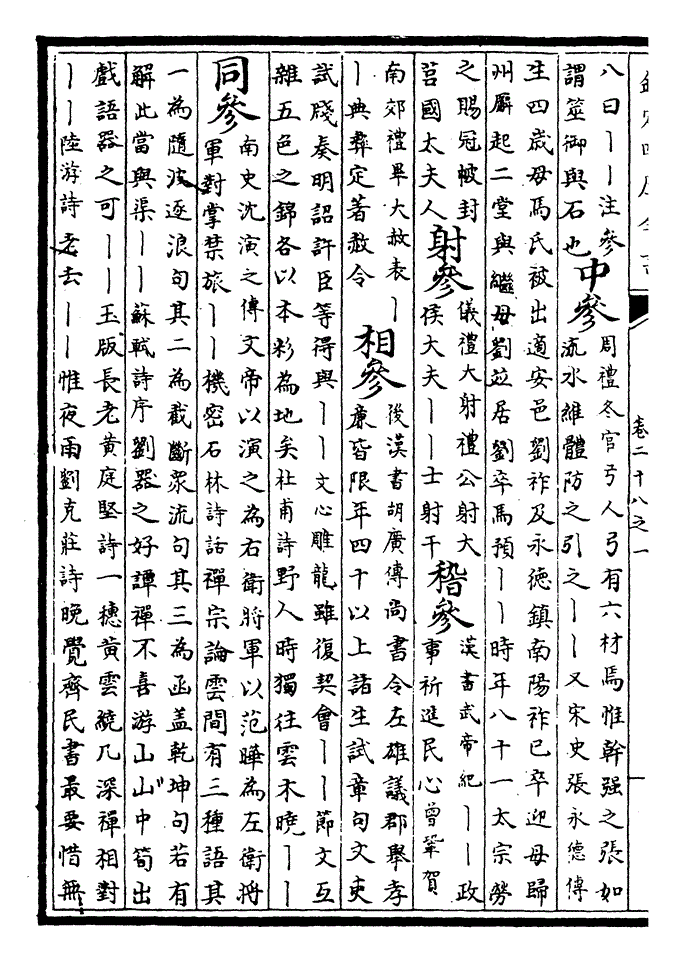 欽定四庫全書
卷二十八之一
八曰丨丨注參
謂筮御與石也
中參
周禮冬官弓人弓有六材焉惟幹强之張如
流水維體防之引之丨丨又宋史張永德傳
生四歲母馬氏被出適安邑劉祚及永德鎮南陽祚已卒迎母歸
州廨起二堂與繼母劉並居劉卒馬預丨丨時年八十一太宗勞
之賜冠帔封
莒國太夫人
射參
儀禮大射禮公射大
侯大夫丨丨士射干
稽參
漢書武帝紀丨丨政
事祈進民心曾鞏賀
南郊禮畢大赦表丨
丨典彝定著赦令
相參
後漢書胡廣傳尚書令左雄議郡舉孝
廉皆限年四十以上諸生試章句文吏
試牋奏明詔許臣等得與丨丨文心雕龍雖復契會丨丨節文互
雜五色之錦各以本彩為地矣杜甫詩野人時獨往雲木曉丨丨
同參
南史沈演之傳文帝以演之為右衛將軍以范曄為左衛將
軍對掌禁旅丨丨機密石林詩話禪宗論雲間有三種語其
一為隨波逐浪句其二為截斷衆流句其三為函蓋乾坤句若有
解此當與渠丨丨蘇軾詩序劉器之好譚禪不喜游山山中筍出
戲語器之可丨丨玉版長老黄庭堅詩一穗黄雲繞几深禪相對
丨丨陸游詩老去丨丨惟夜雨劉克莊詩晚覺齊民書最要惜無